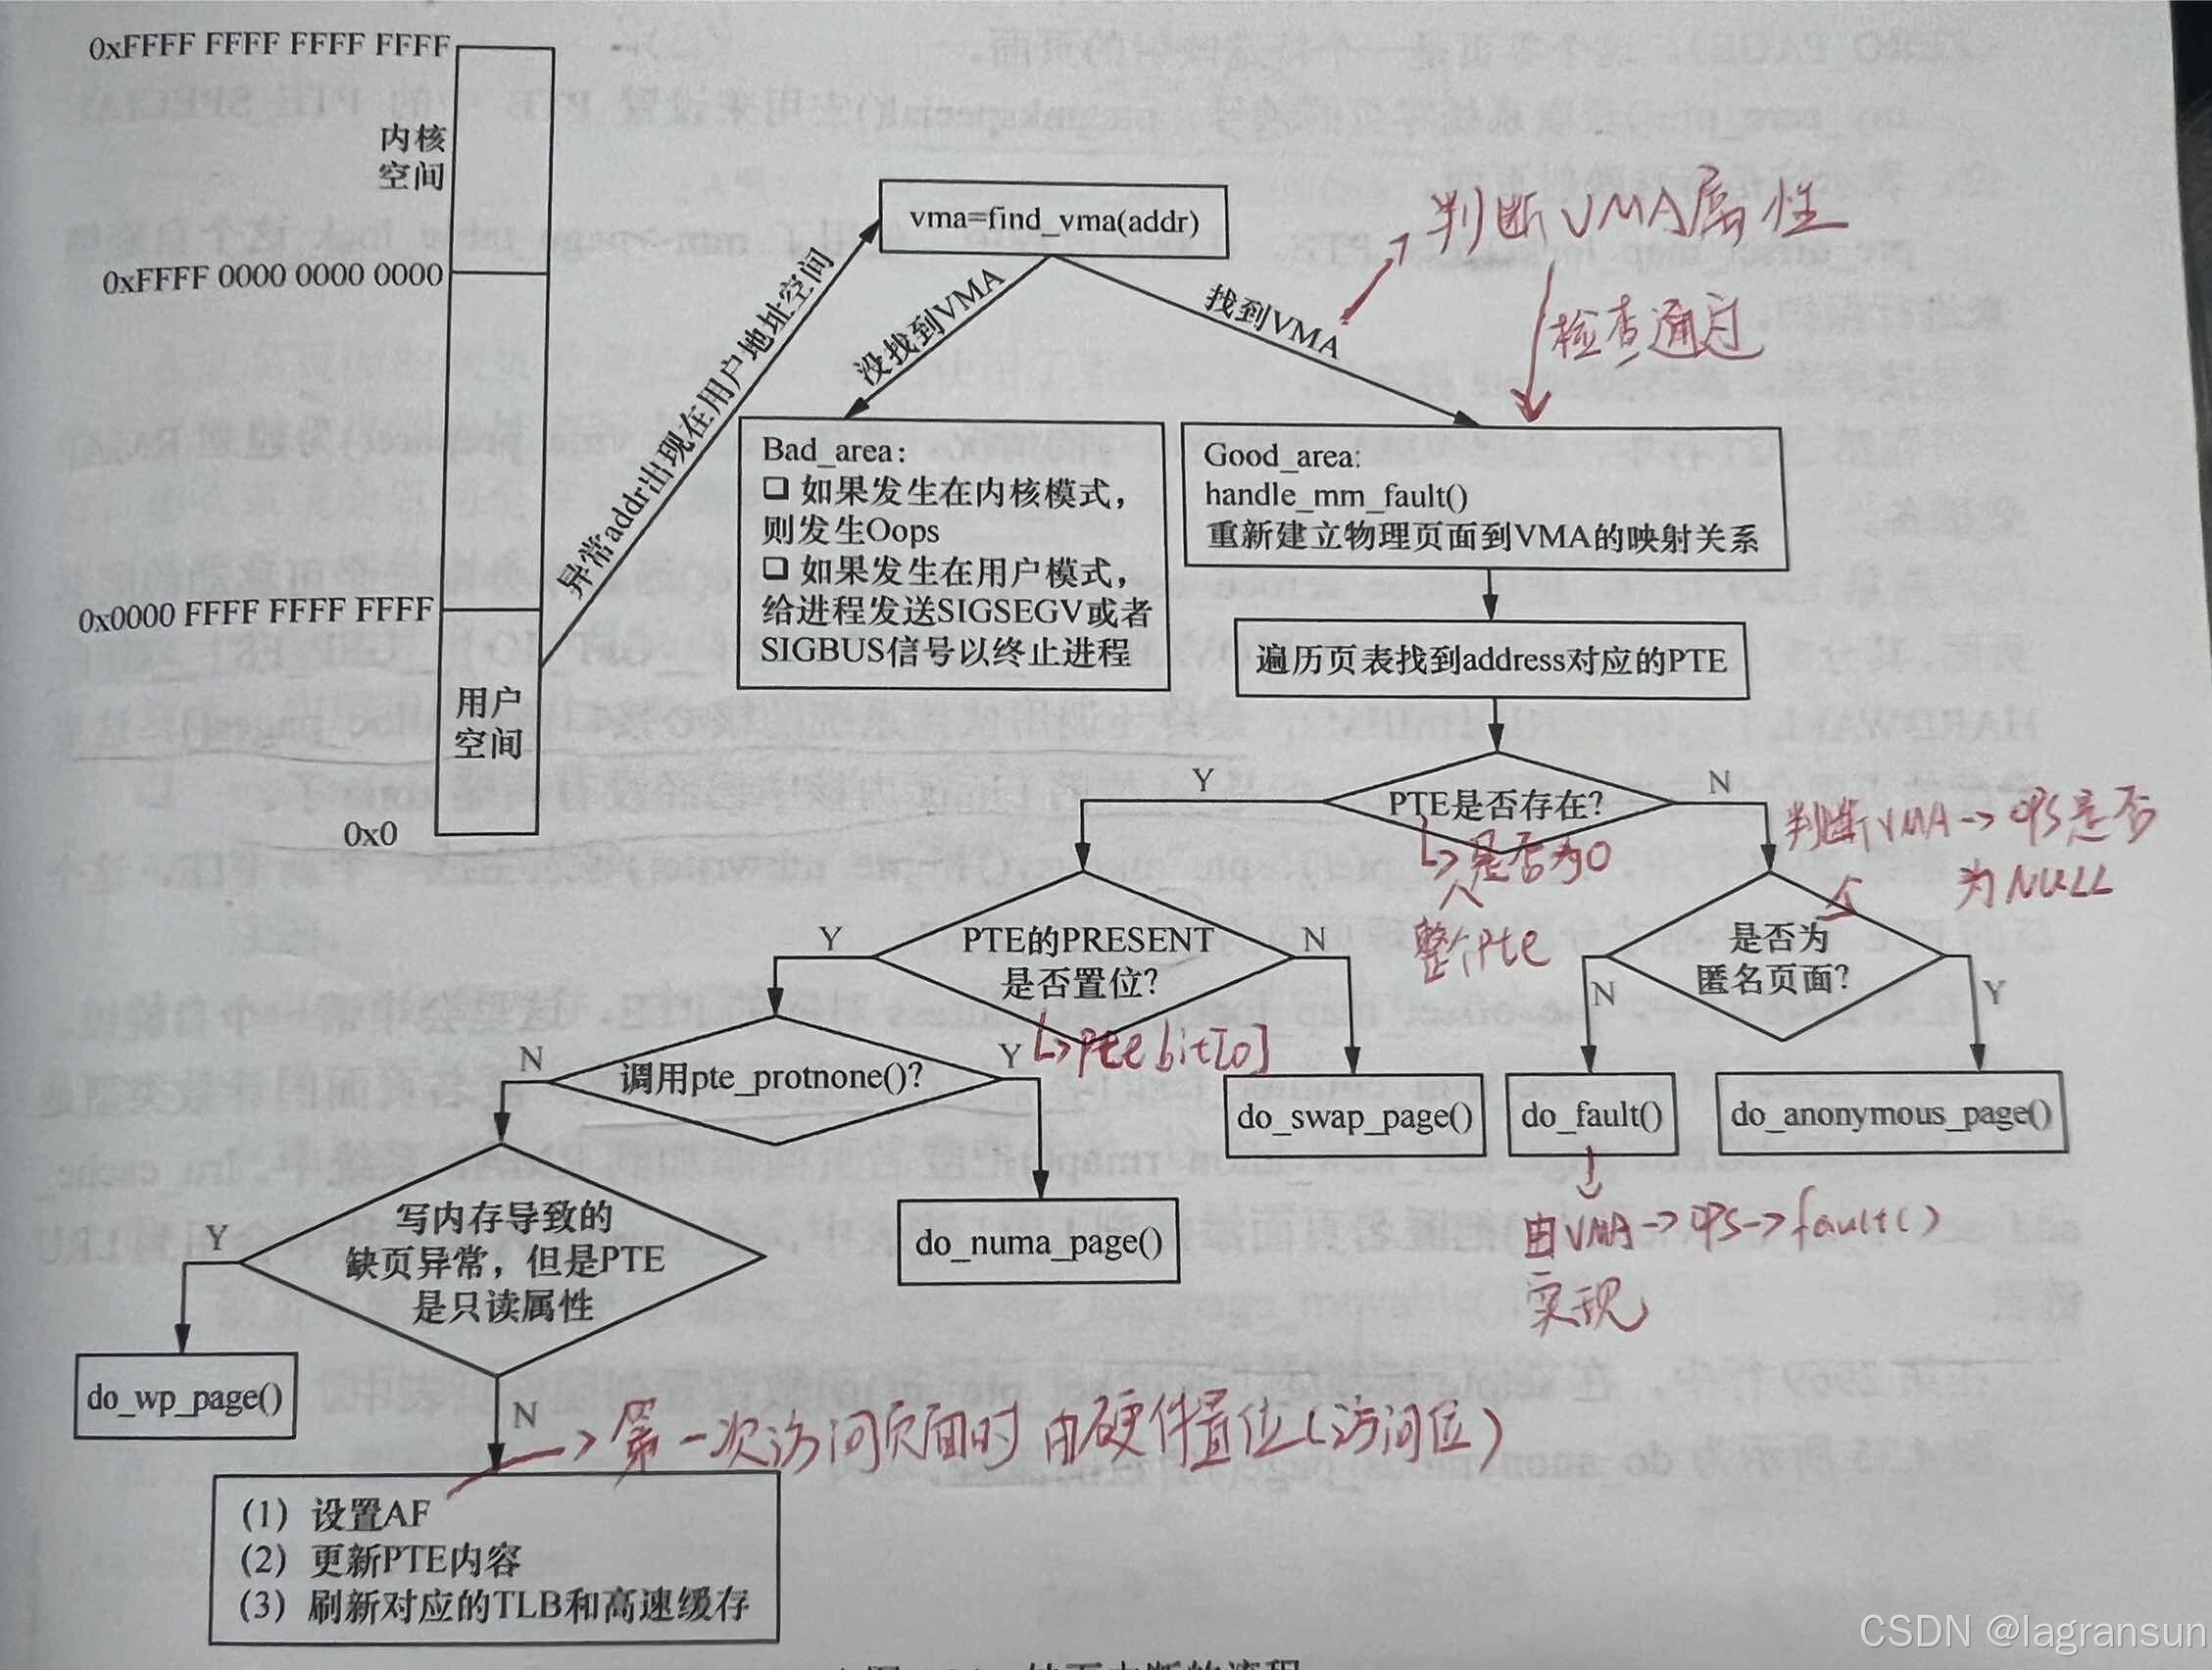 0xFFFF FFFF FFFF FFFF
内核
空间
0xFFFF 0000 0000 0000
0x0000 FFFF FFFF FFFF
用户
空间
0x0
异常addr出现在用户地址空间
vma=find_vma(addr)
没找到VMA
找到VMA
判断VMA属性
检查通过
Bad_area:
❏ 如果发生在内核模式，
则发生Oops
❏ 如果发生在用户模式，
给进程发送SIGSEGV或者
SIGBUS信号以终止进程
Good_area:
handle_mm_fault()
重新建立物理页面到VMA的映射关系
遍历页表找到address对应的PTE
PTE是否存在?
Y
N
是否为0
整个pte
判断VMA→ops是否
为NULL
PTE的PRESENT
是否置位?
Y
N
pte bit[0]
是否为
匿名页面?
N
Y
调用pte_protnone()?
N
Y
do_swap_page()
do_fault()
do_anonymous_page()
由VMA→ops→fault()
实现
写内存导致的
缺页异常，但是PTE
是只读属性
Y
N
do_numa_page()
do_wp_page()
第一次访问页面时 由硬件置位(访问位)
(1) 设置AF
(2) 更新PTE内容
(3) 刷新对应的TLB和高速缓存
CSDN @lagransun